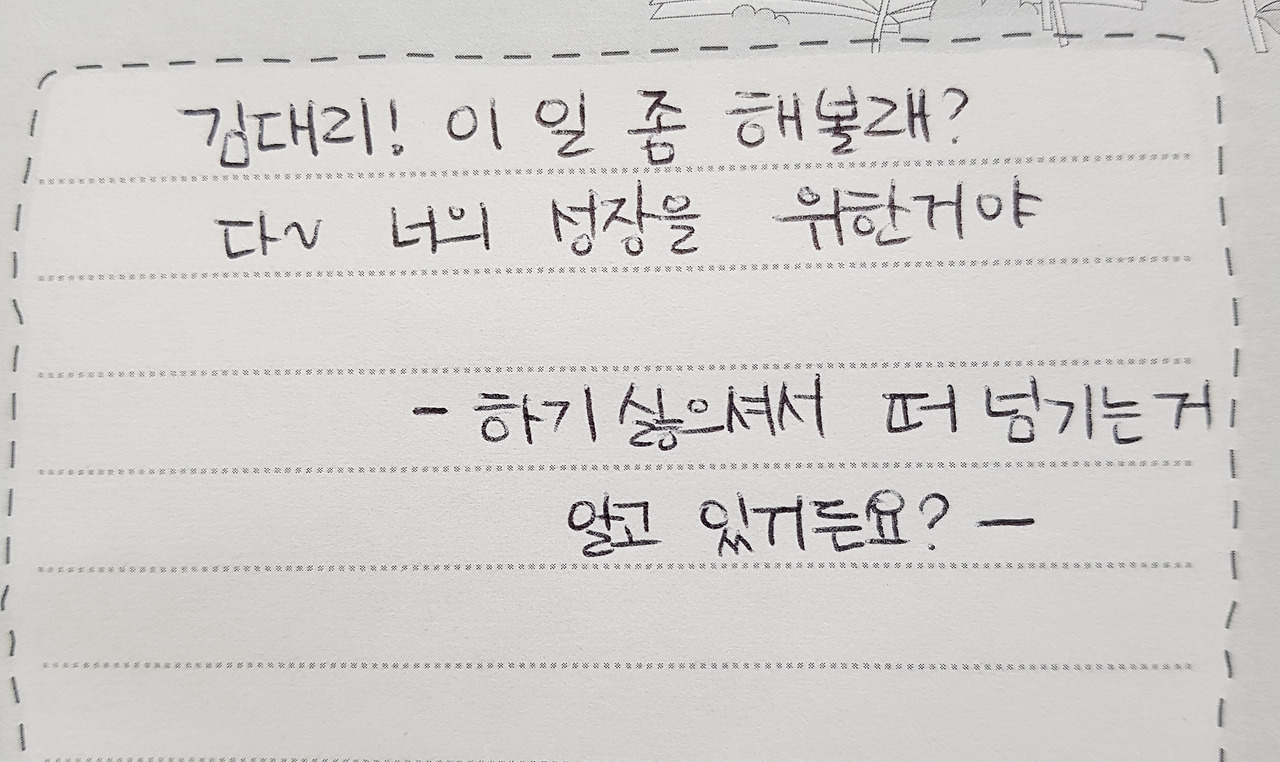 김대리! 이 일 좀 해볼래?
다~ 너의 성장을 위한거야
- 하기 싫으셔서 떠 넘기는거
알고 있거든요? -